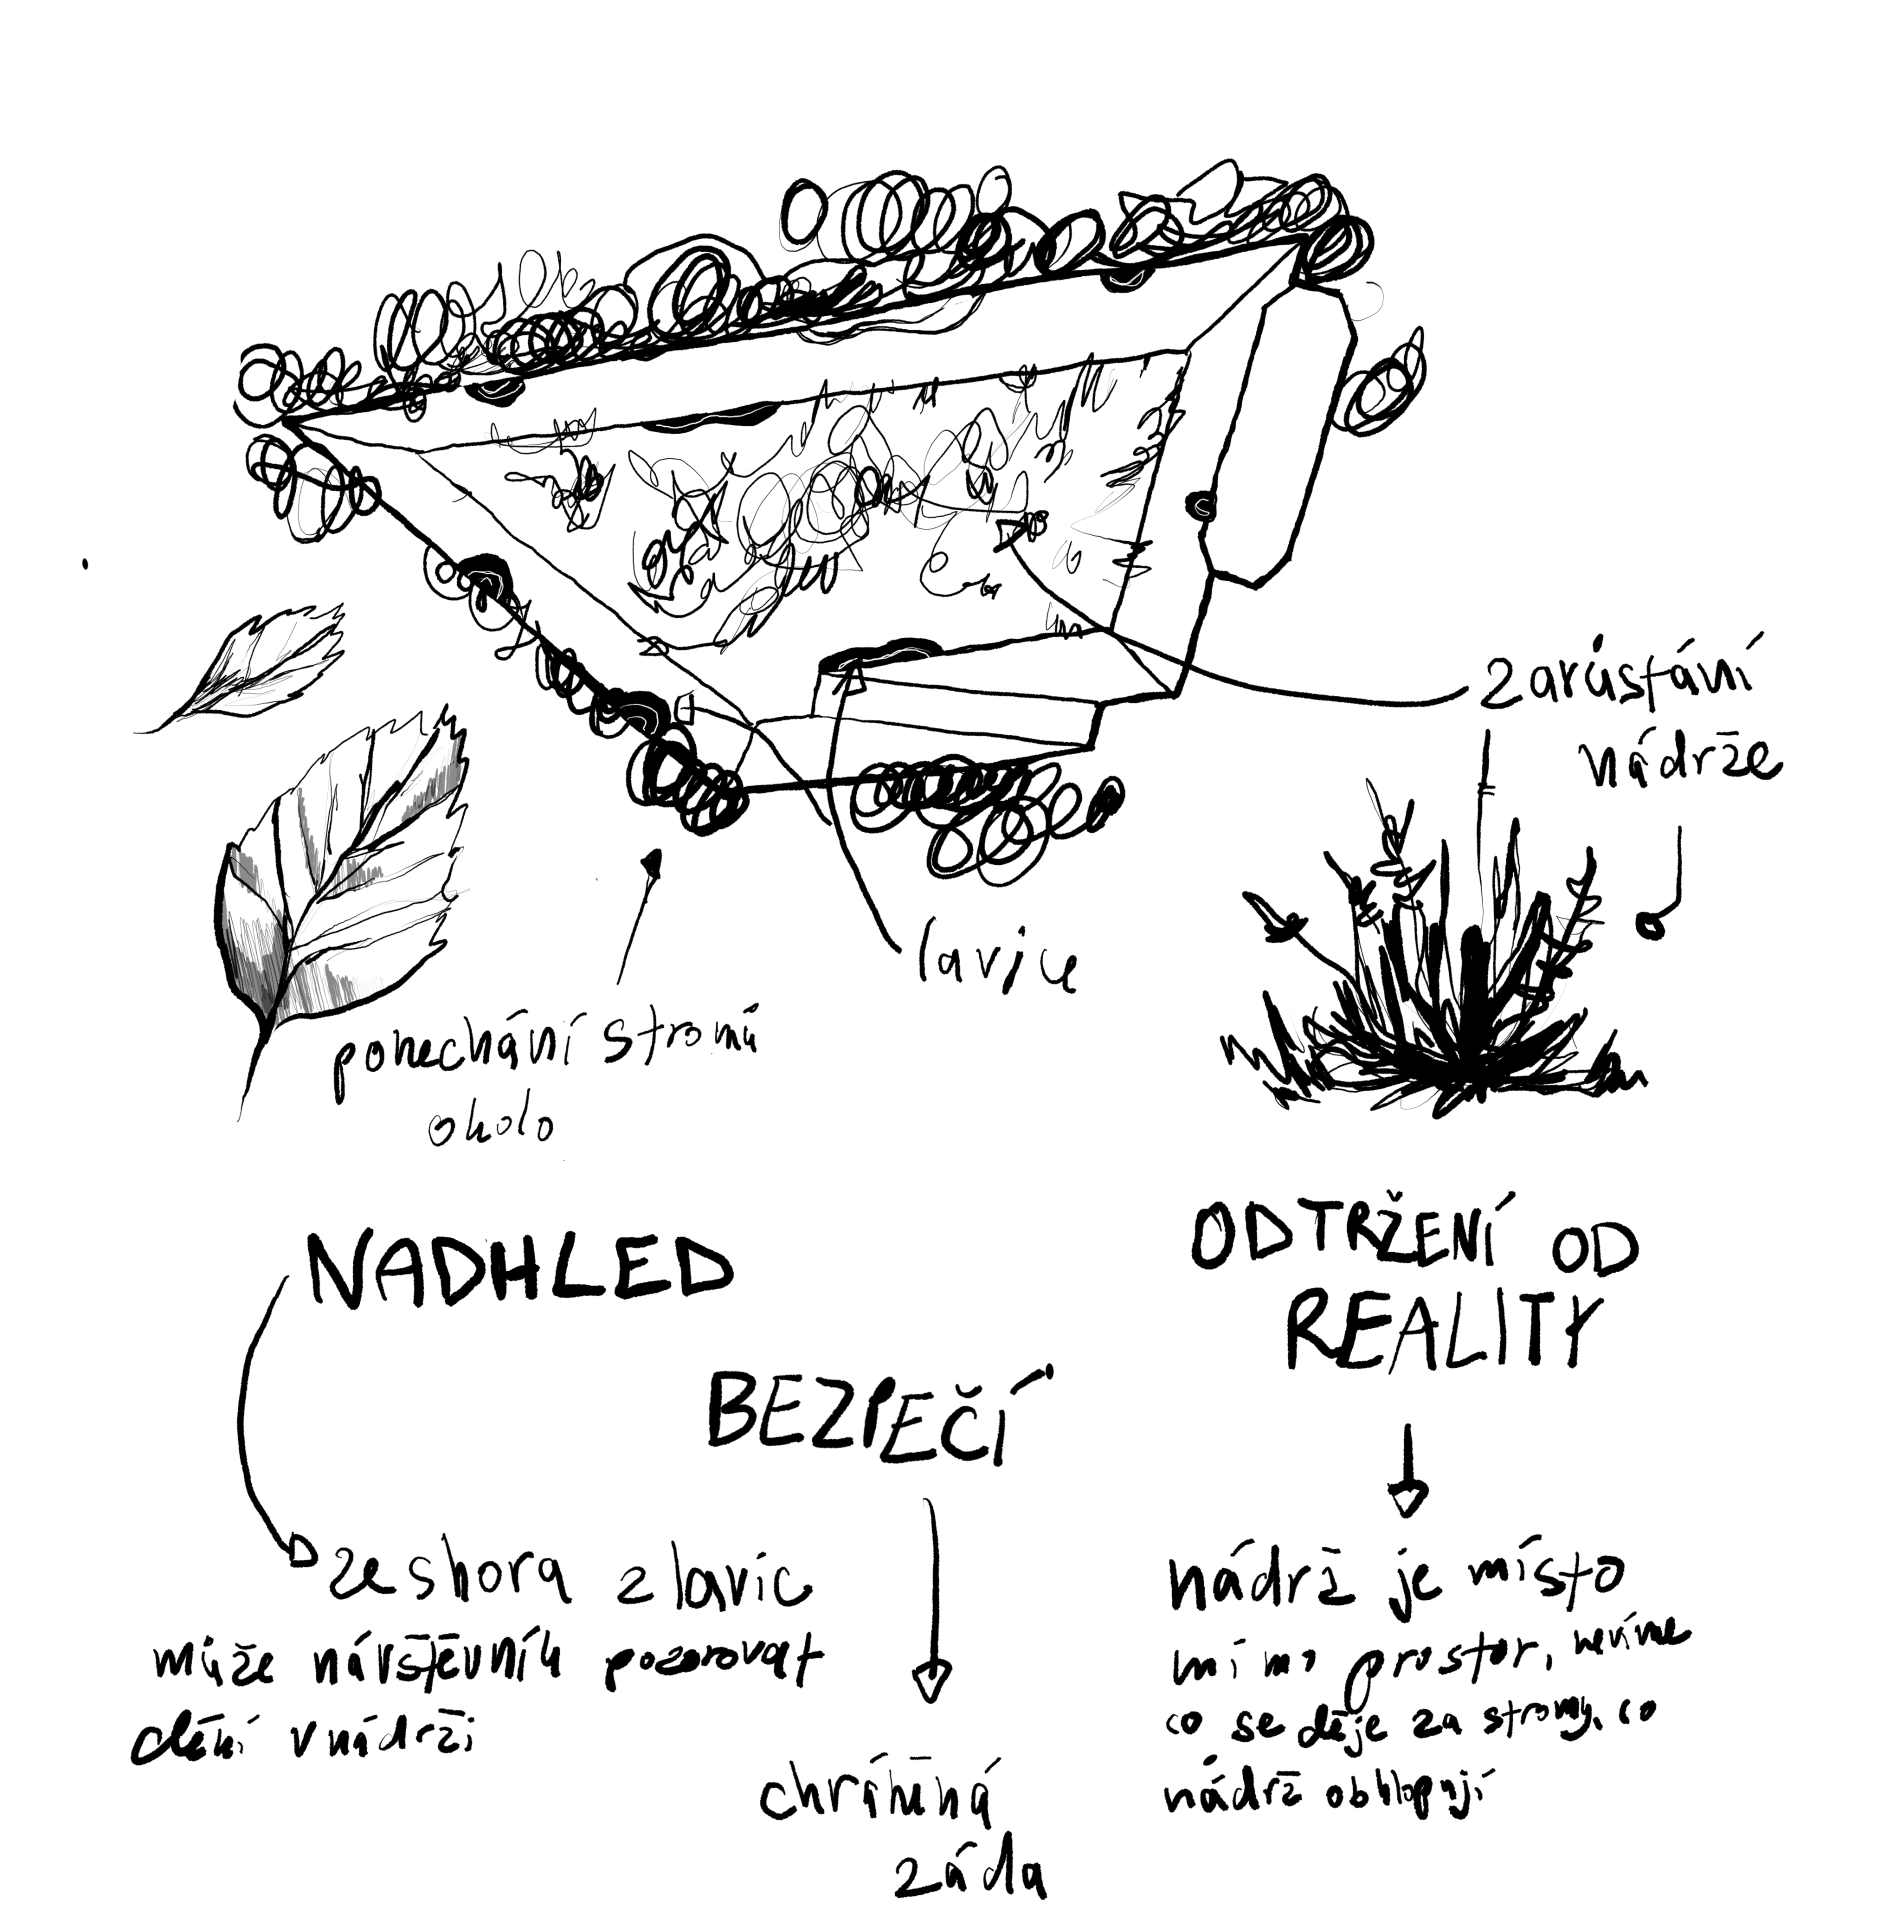 zarůstání
nádrže
lavice
ponechání stromů
okolo
NADHLED
ODTRŽENÍ OD
REALITY
BEZPEČÍ
ze shora z lavic
může návštěvník pozorovat
dění v nádrži
chráněná
záda
nádrž je místo
mimo prostor, nevíme
co se děje za stromy, co
nádrž obklopují